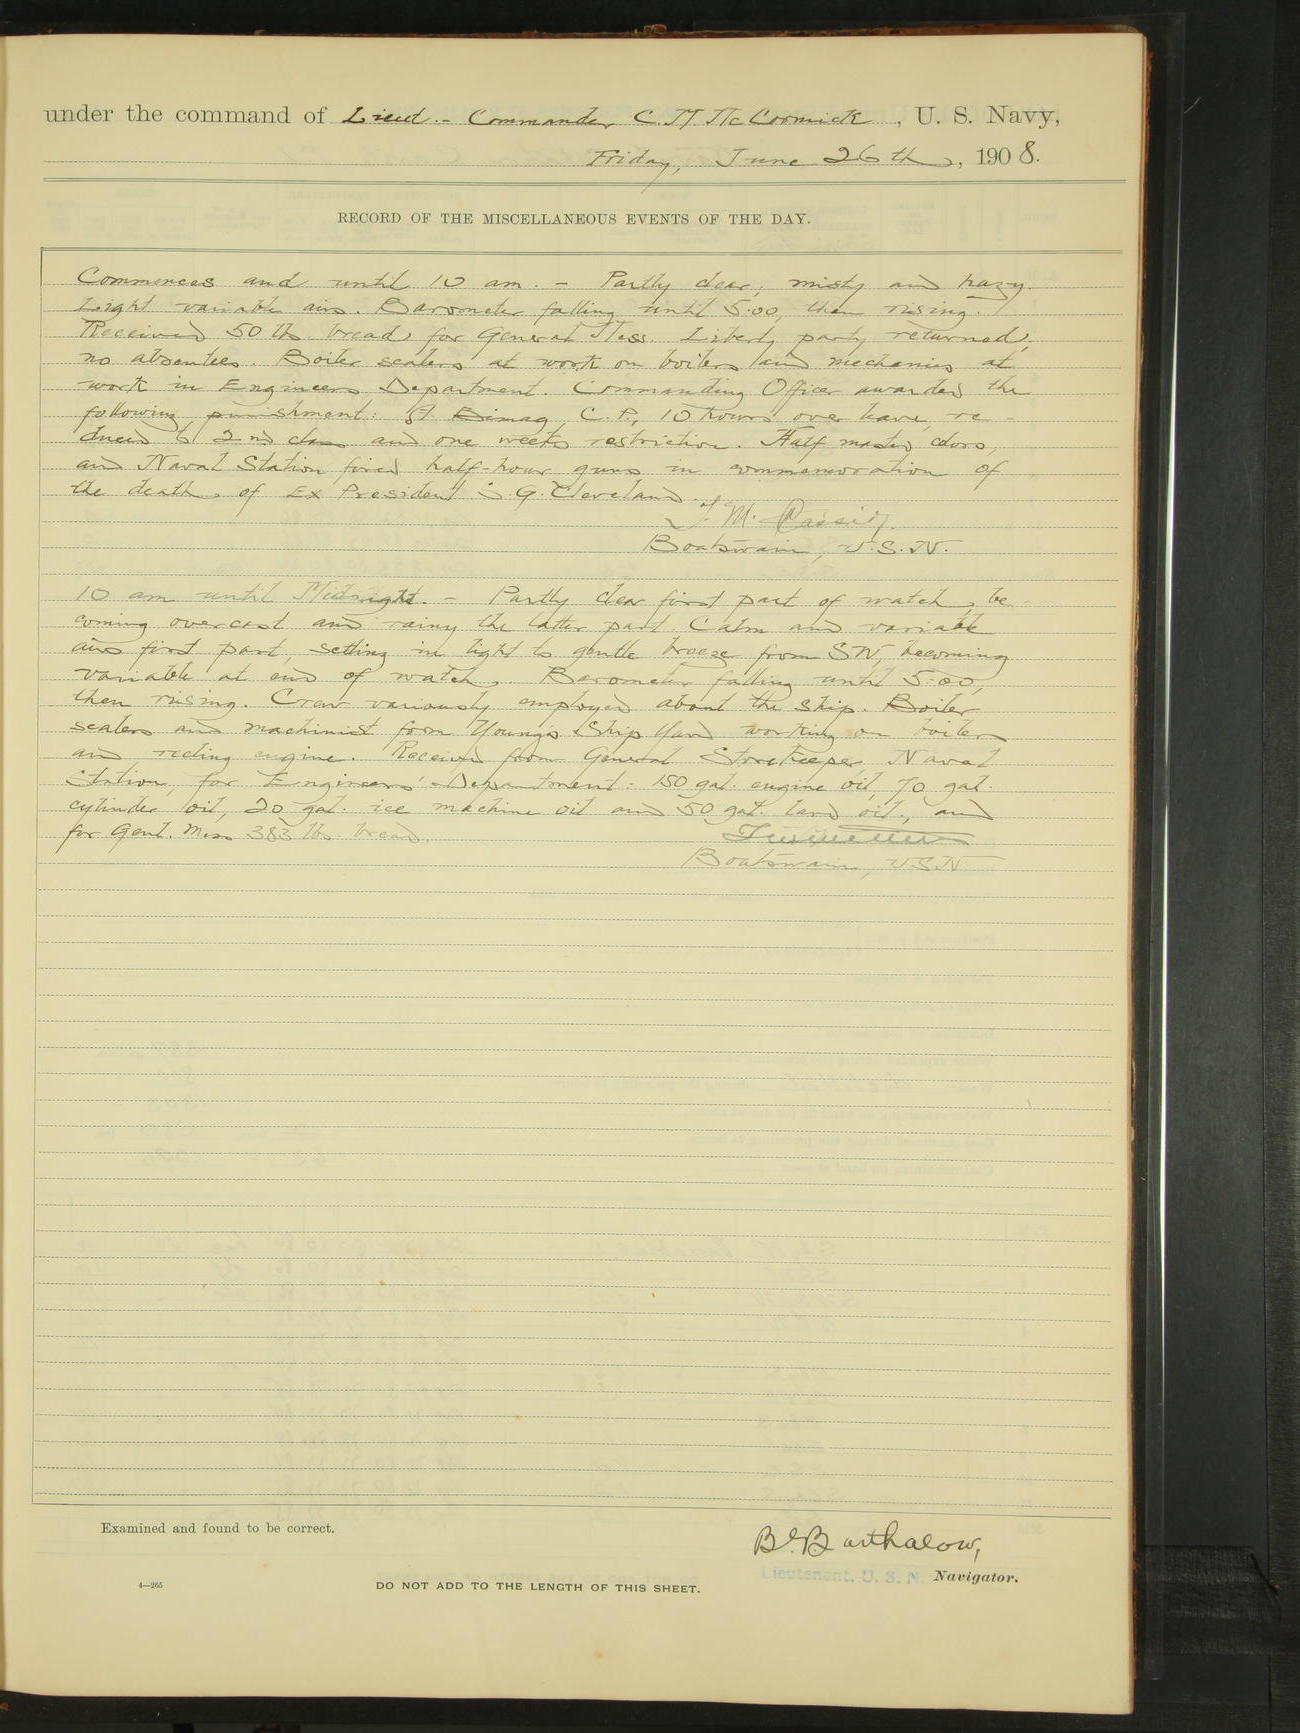 under the command of Lieut.- Commander C.M. McCormick, U. S. Navy,
Friday, June 26th, 1908.
RECORD OF THE MISCELLANEOUS EVENTS OF THE DAY.
Commences and until 10 am. - Partly clear, misty and hazy.
Light variable airs. Barometer falling until 5:00, then rising.
Received 50 lbs. bread for General Mess. Liberty party returned,
no absentees. Boiler scalers at work on boilers and mechanics at
work in Engineers Department. Commanding Officer awarded the
following punishment: C.P., 10 hours over leave, re-
duced to 2nd class and one weeks restriction. Half masted colors,
and Naval Station fired half-hour guns in commemoration of
the death of Ex President S. G. Cleveland.
M. Cassidy.
Boatswain, U.S.N.
10 am until Midnight. - Partly clear first part of watch, be-
coming overcast and rainy the latter part. Calm and variable
airs first part, setting in light to gentle breeze from SW, becoming
variable at end of watch. Barometer falling until 5:00,
then rising. Crew variously employed about the ship. Boiler
scalers and machinist from Young's Ship Yard working on boilers
and reeling engine. Received from General Storekeeper Naval
Station, for Engineers' Department: 150 gal. engine oil, 70 gal.
cylinder oil, 20 gal. ice machine oil and 50 gal. lard oil, and
for Genl. Mess 383 lbs. bread.
Boatswain, U.S.N
Examined and found to be correct.
B. B. Barthalow,
Lieutenant, U. S. N. Navigator.
4—265
DO NOT ADD TO THE LENGTH OF THIS SHEET.